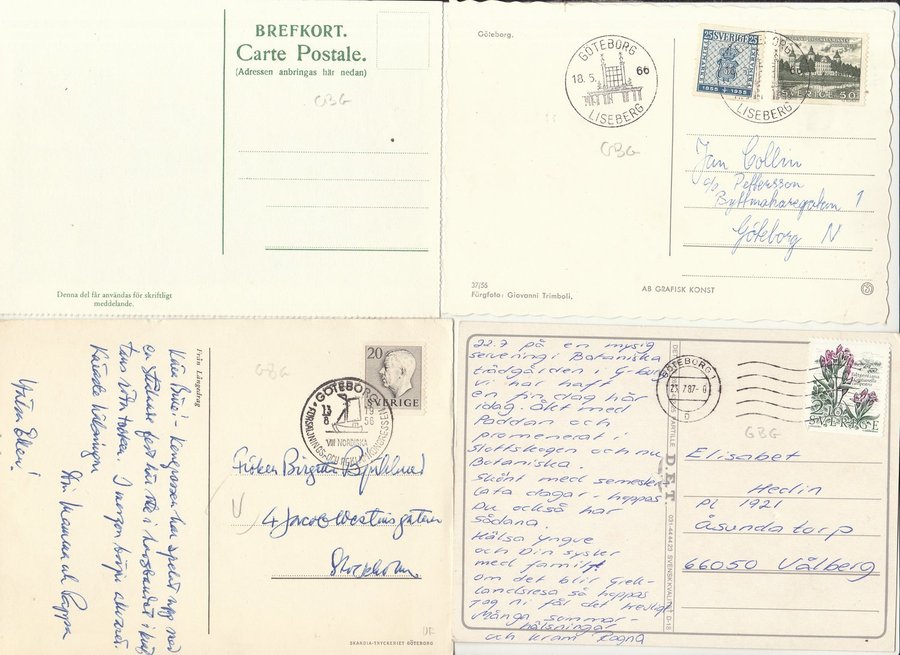 BREFKORT.
Carte Postale.
(Adressen anbringas här nedan)
GBG
Denna del får användas för skriftligt
meddelande.
Göteborg.
GÖTEBORG
18.5. 66
LISEBERG
25 SVERIGE 25
1855 1955
SVERIGE 50
GÖTEBORG
66
LISEBERG
GBG
Jan Collin
c/o Pettersson
Byttmakaregatan 1
Göteborg N
37/56
Färgfoto: Giovanni Trimboli.
AB GRAFISK KONST
Från Långedrag
GBG
20
SVERIGE
GÖTEBORG
13 19
8 56
VIII NORDISKA
FÖRSÄLJNINGS- OCH REKLAMKONGRESSEN
Fröken Birgitta
4 Jacob Westinsgatan
Stockholm
Kära Bibbi - Kongressen har
en fest här ute i
I morgon börjar
Kärleks hälsningar
Din Mamma och Pappa
SKANDIA-TRYCKERIET GÖTEBORG
22.7 på en mysig
servering i Botaniska
trädgården i G-borg
vi har haft
en fin dag här
idag. Åkt med
Paddan och
promenerat i
Slottskogen och nu
Botaniska.
Skönt med semester
lata dagar - hoppas
Du också har
sådana.
Hälsa Yngve
och Din syster
med familj
Om det blir Grek-
landsresa så hoppas
jag Ni får det trevligt
Många sommar-
hälsningar
och kram Ragna
GÖTEBORG 1
23.7.87-
SVERIGE
GBG
DET
031-444423 SVENSK KVALITET
Elisabet
Hedin
PL 1921
Åsundatorp
66050 Vålberg